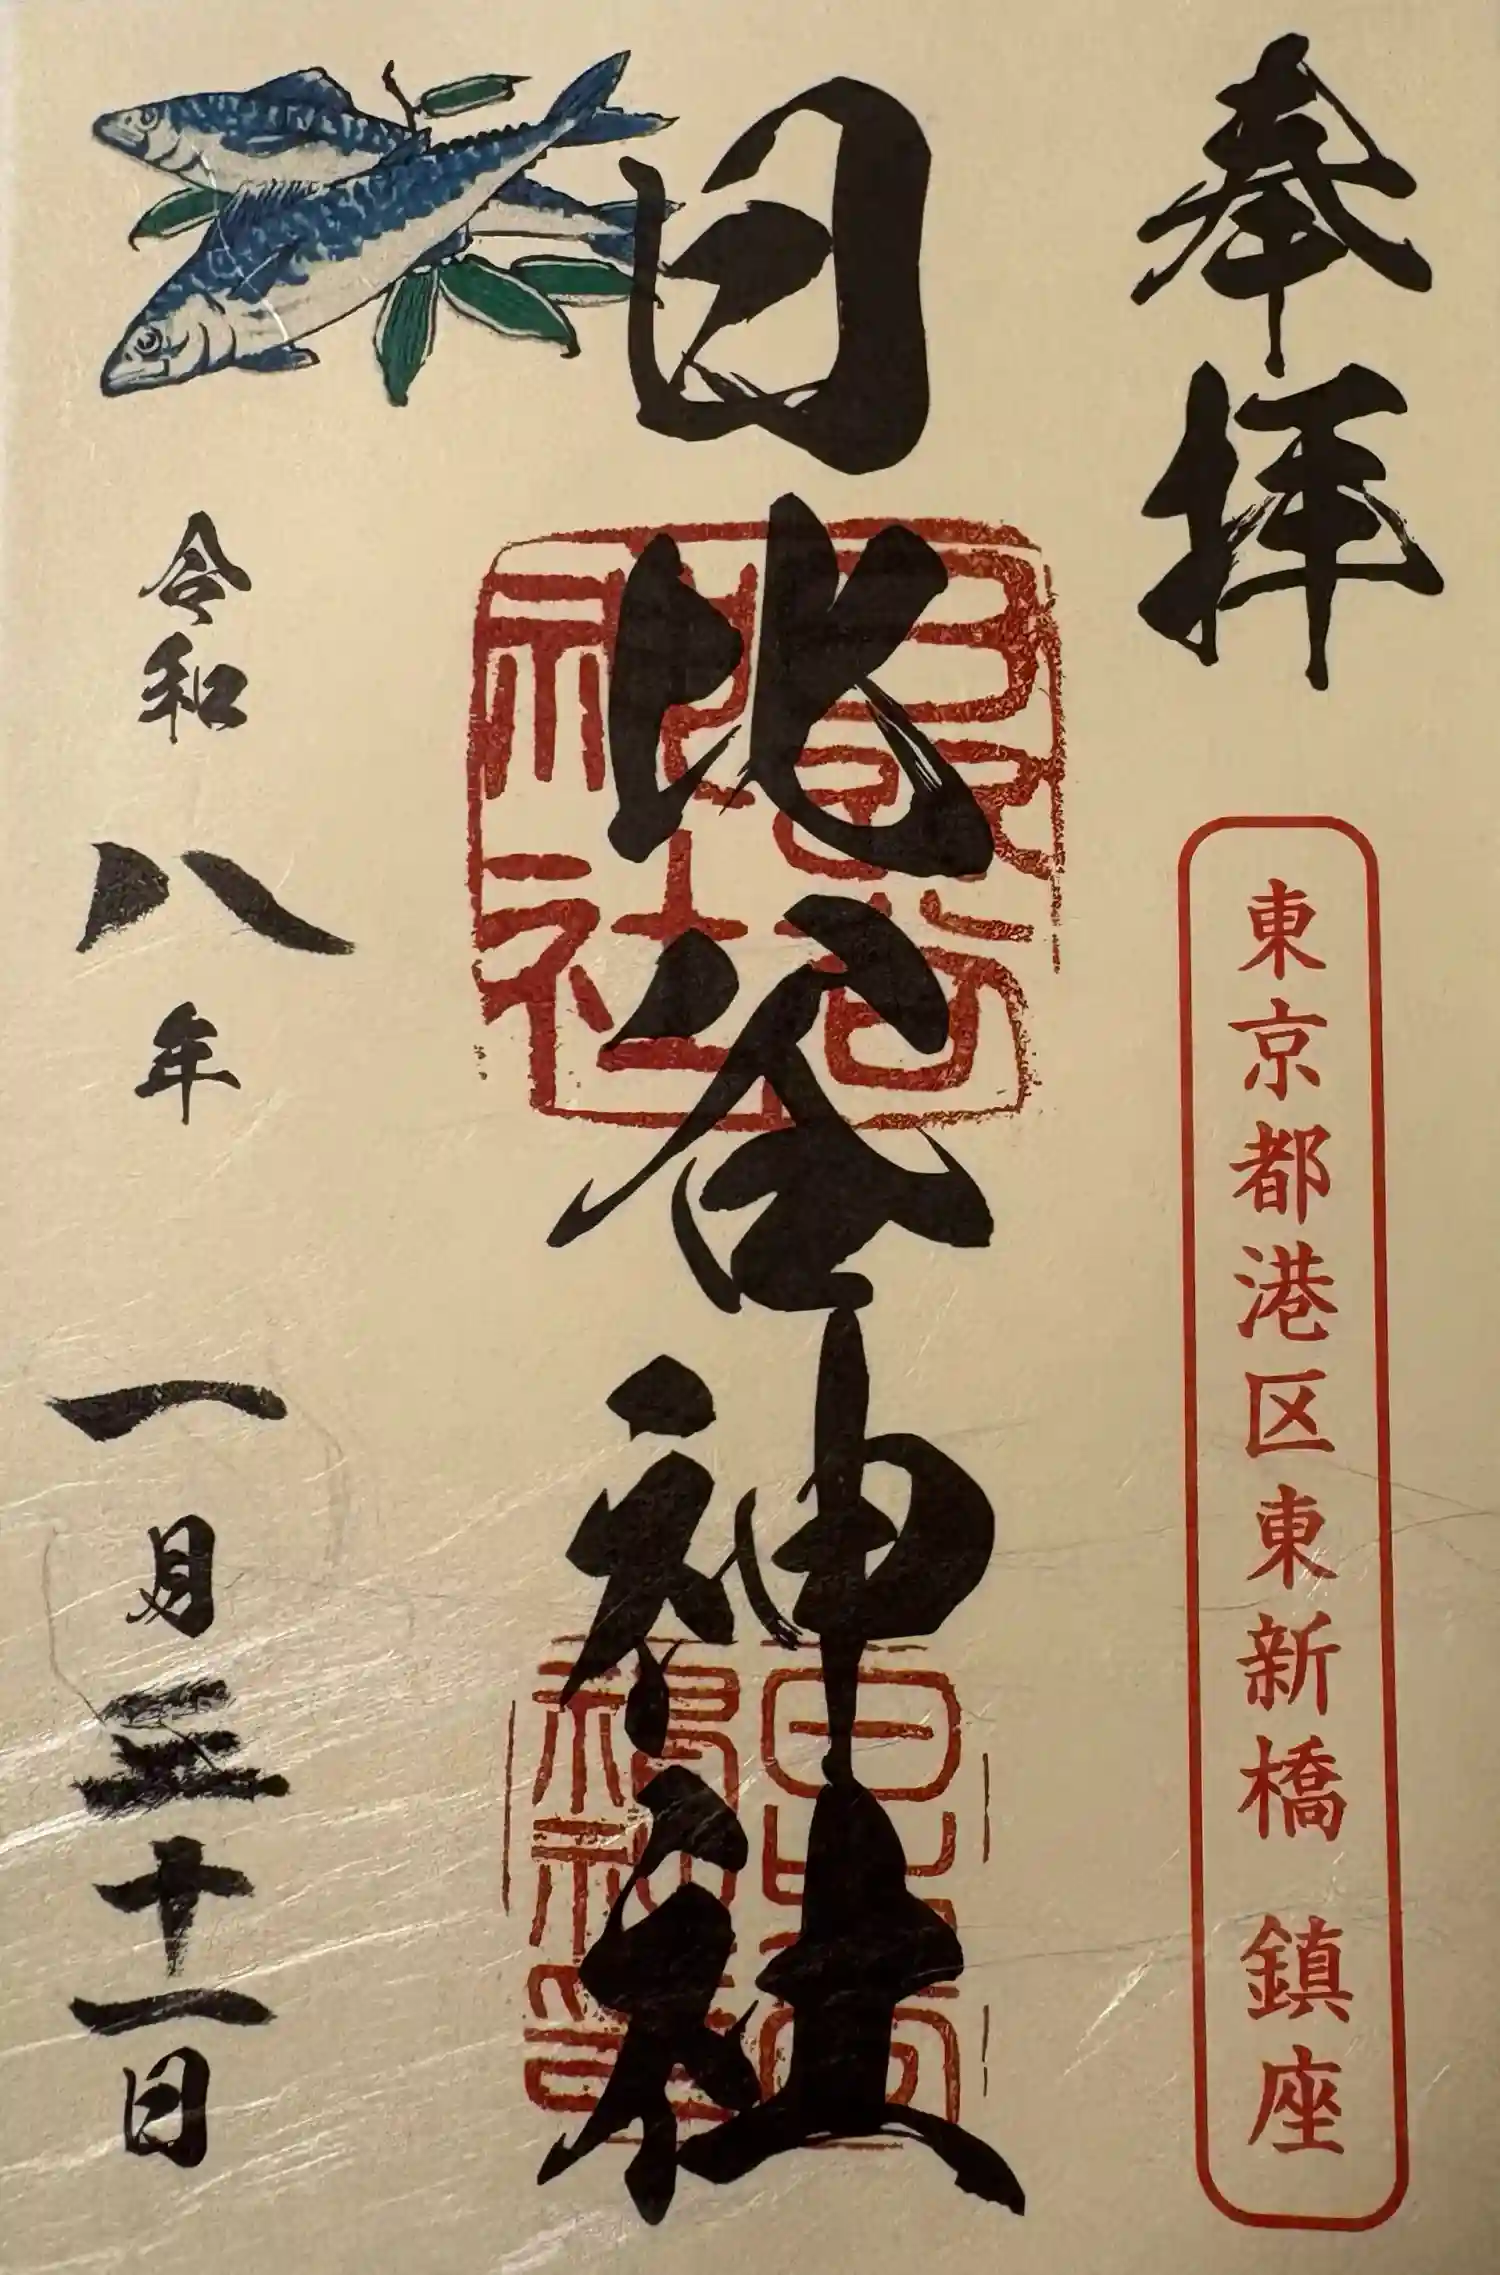 奉拝
東京都港区東新橋 鎮座
日比谷神社
令和八年一月三十一日